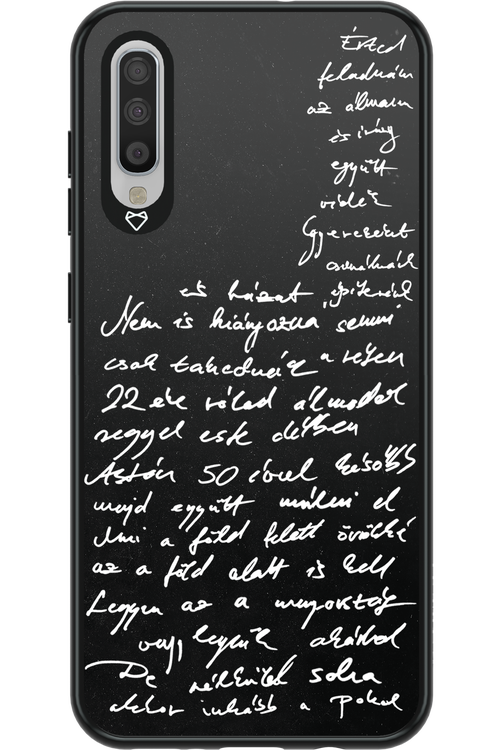 Érted
feladnám
az álmaim
és
együtt
vidék
Gyereket
csinálnék
és házat építenék
Nem is hiányozna semmi
csak takednék a részen
22 éve rólad álmodok
reggel este délben
Aztán 50 évvel később
majd együtt múlni el
Ami a föld felett örökké
az a föld alatt is kell
Legyen az a mennyország
vagy legyünk akárhol
De nélküled soha
akkor inkább a pokol